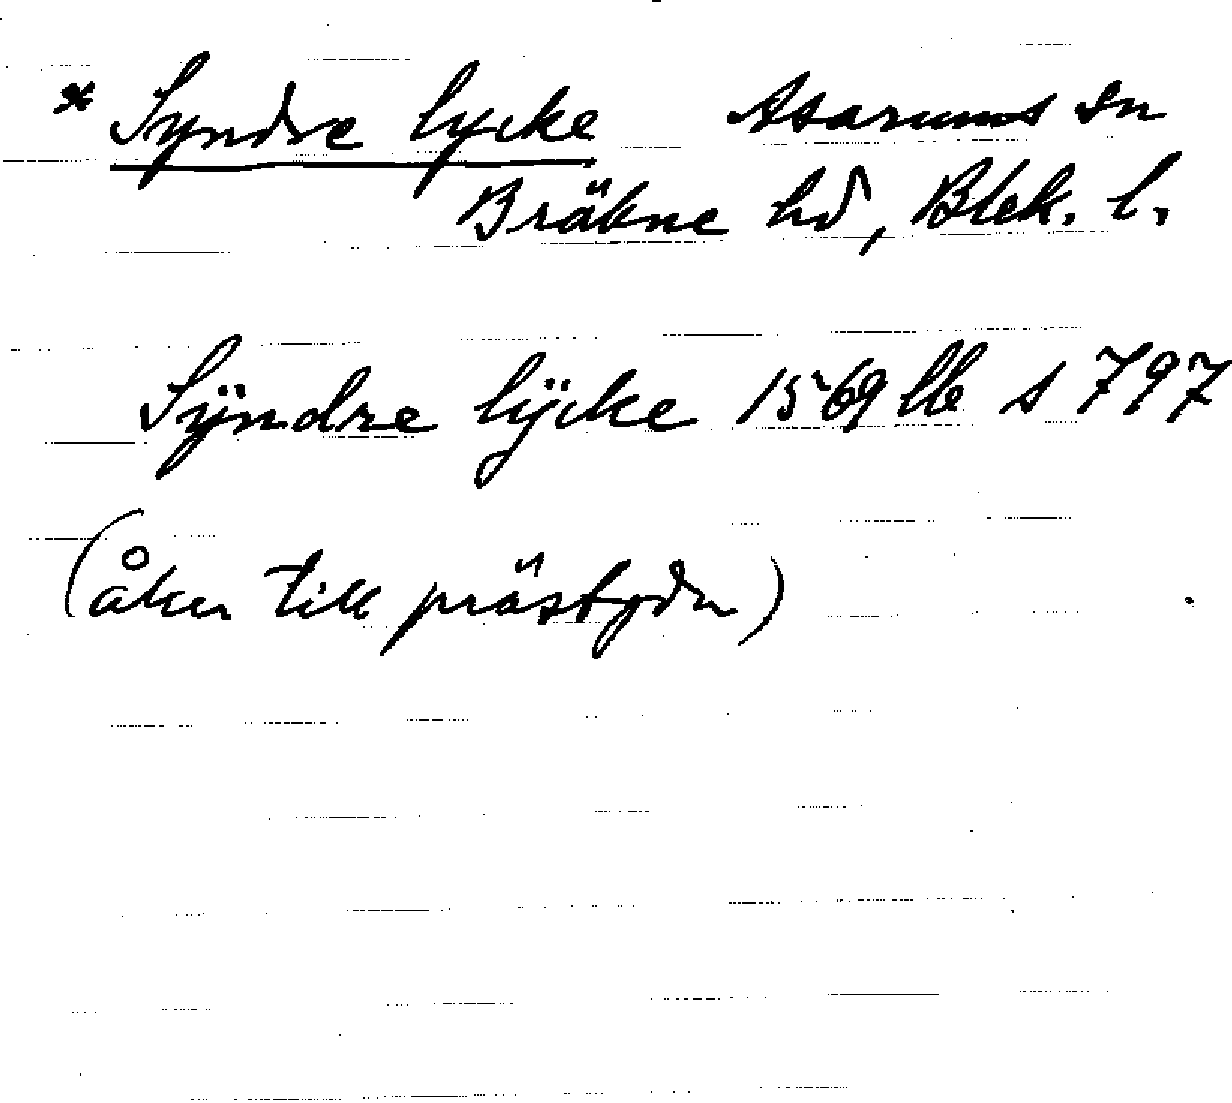 * Syndre lycke Asarums sn
Bräkne hd, Blek. l.
Sÿndre lÿcke 1569 llb s 797
(åker till prästgdn)